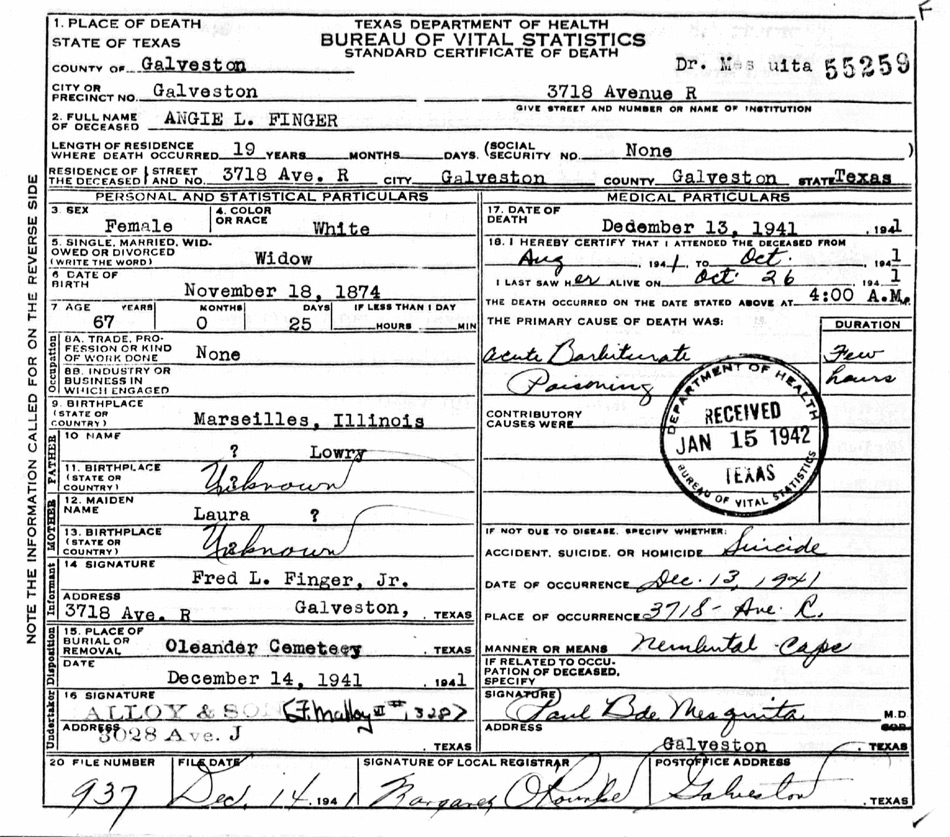 F
1. PLACE OF DEATH
STATE OF TEXAS
COUNTY OF Galveston
CITY OR PRECINCT NO. Galveston
TEXAS DEPARTMENT OF HEALTH
BUREAU OF VITAL STATISTICS
STANDARD CERTIFICATE OF DEATH
Dr. Mes uita 55259
3718 Avenue R
GIVE STREET AND NUMBER OR NAME OF INSTITUTION
2. FULL NAME OF DECEASED ANGIE L. FINGER
LENGTH OF RESIDENCE WHERE DEATH OCCURRED 19 YEARS MONTHS DAYS. (SOCIAL SECURITY NO. None )
RESIDENCE OF THE DECEASED STREET AND NO. 3718 Ave. R CITY Galveston COUNTY Galveston STATE Texas
NOTE THE INFORMATION CALLED FOR ON THE REVERSE SIDE
PERSONAL AND STATISTICAL PARTICULARS
3. SEX Female
4. COLOR OR RACE White
5. SINGLE, MARRIED, WIDOWED OR DIVORCED (WRITE THE WORD) Widow
6 DATE OF BIRTH November 18, 1874
7 AGE YEARS MONTHS DAYS IF LESS THAN 1 DAY
67 0 25 HOURS MIN
Occupation
8A. TRADE, PROFESSION OR KIND OF WORK DONE None
8B. INDUSTRY OR BUSINESS IN WHICH ENGAGED
9. BIRTHPLACE (STATE OR COUNTRY) Marseilles, Illinois
FATHER
10 NAME ? Lowry
11. BIRTHPLACE (STATE OR COUNTRY) Unknown
MOTHER
12. MAIDEN NAME Laura ?
13. BIRTHPLACE (STATE OR COUNTRY) Unknown
Informant
14 SIGNATURE Fred L. Finger, Jr.
ADDRESS 3718 Ave. R Galveston, , TEXAS
Disposition
15. PLACE OF BURIAL OR REMOVAL Oleander Cemetery . TEXAS
DATE December 14, 1941 , 1941
Undertaker
16 SIGNATURE ALLOY & SON
ADDRESS 3028 Ave. J . TEXAS
MEDICAL PARTICULARS
17. DATE OF DEATH Dedember 13, 1941 , 1941
18. I HEREBY CERTIFY THAT I ATTENDED THE DECEASED FROM
Aug , 1941, TO Oct. 1941
I LAST SAW Her ALIVE ON Oct 26 1941
THE DEATH OCCURRED ON THE DATE STATED ABOVE AT 4:00 A.M.
THE PRIMARY CAUSE OF DEATH WAS: DURATION
Acute Barbiturate Few
Poisoning hours
CONTRIBUTORY CAUSES WERE
DEPARTMENT OF HEALTH
RECEIVED
JAN 15 1942
TEXAS
BUREAU OF VITAL STATISTICS
IF NOT DUE TO DISEASE, SPECIFY WHETHER:
ACCIDENT, SUICIDE, OR HOMICIDE Suicide
DATE OF OCCURRENCE Dec. 13, 1941
PLACE OF OCCURRENCE 3718 - Ave R.
MANNER OR MEANS Nembutal Caps
IF RELATED TO OCCUPATION OF DECEASED, SPECIFY
SIGNATURE) Paul B de Mesquita M.D.
ADDRESS Galveston . TEXAS
20 FILE NUMBER FILE DATE SIGNATURE OF LOCAL REGISTRAR POSTOFFICE ADDRESS
937 Dec. 14. 1941 Margaret O'Rourke Galveston , TEXAS